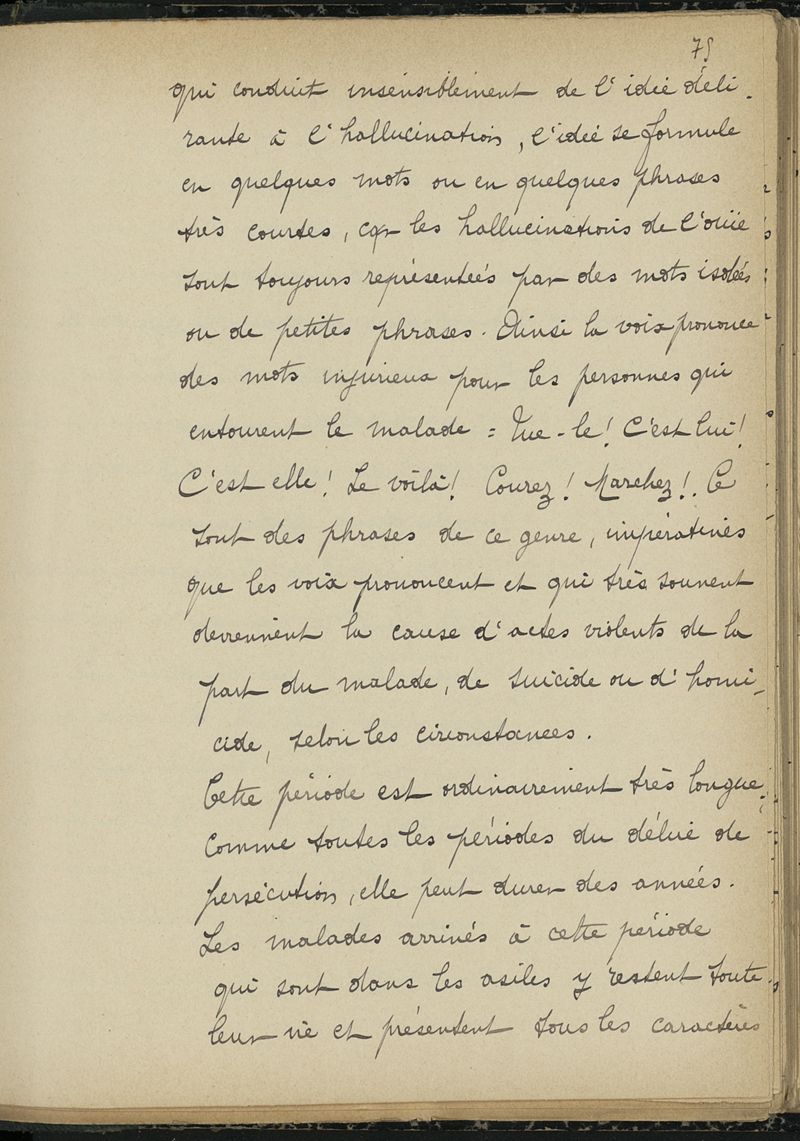 75
qui conduit insensiblement de l'idée déli-
rante à l'hallucination, l'idée se formule
en quelques mots ou en quelques phrases
très courtes, car les hallucinations de l'ouïe
sont toujours représentées par des mots isolés
ou de petites phrases. Ainsi la voix prononce
des mots injurieux pour les personnes qui
entourent le malade = Tue-le! C'est lui!
C'est elle! Le voilà! Courez! Marchez!. Ce
sont des phrases de ce genre, impératives
que les voix prononcent et qui très souvent
deviennent la cause d'actes violents de la
part du malade, de suicide ou d'homi-
cide, selon les circonstances.
Cette période est ordinairement très longue.
Comme toutes les périodes du délire de
persécution, elle peut durer des années.
Les malades arrivés à cette période
qui sont dans les asiles y restent toute
leur vie et présentent tous les caractères